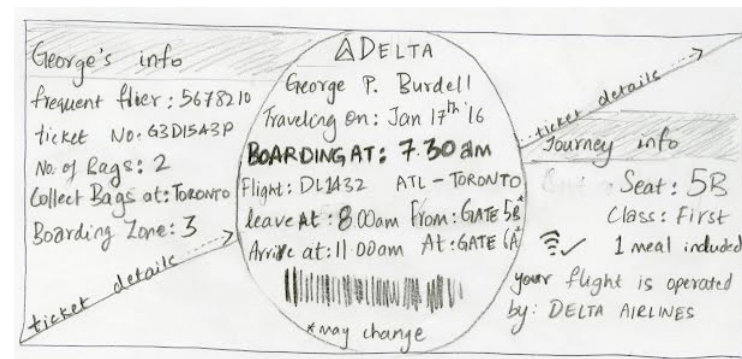 George's info
frequent flier: 5678210
ticket No: G3D15A3P
No. of Bags: 2
Collect Bags at: TORONTO
Boarding Zone: 3
ticket details
DELTA
George P. Burdell
Traveling on: Jan 17th '16
BOARDING AT: 7.30 am
Flight: DL1432 ATL - TORONTO
leave At: 8.00am From: GATE 5B*
Arrive at: 11.00am At: GATE 6A*
*may change
ticket details
Journey info
Seat: 5B
Class: First
1 meal included
your flight is operated
by: DELTA AIRLINES